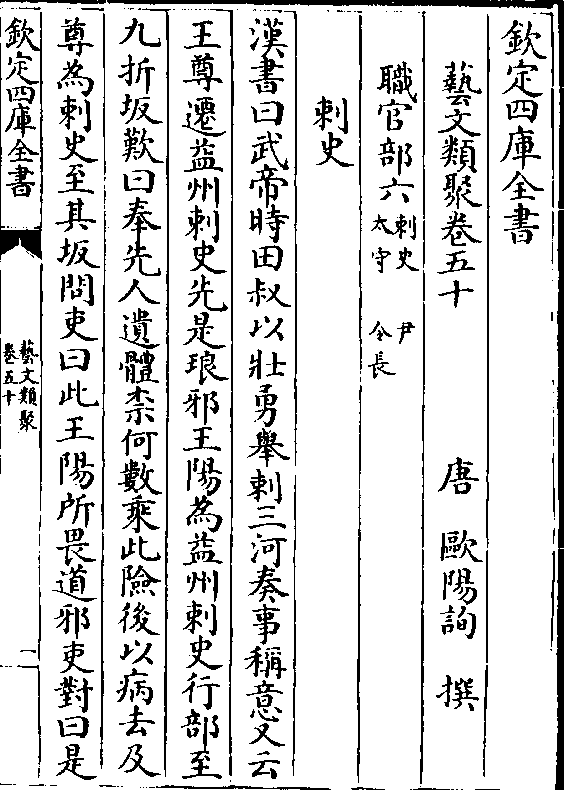 欽定四庫全書
藝文類聚卷五十
唐 歐陽詢 撰
職官部六 刺史 尹 太守 令長
刺史
漢書曰武帝時田叔以壯勇舉刺三河奏事稱意又云
王尊遷益州刺史先是琅邪王陽為益州刺史行部至
九折坂歎曰奉先人遺體柰何數乘此險後以病去及
尊為刺史至其坂問吏曰此王陽所畏道邪吏對曰是
欽定四庫全書
藝文類聚
卷五十
一